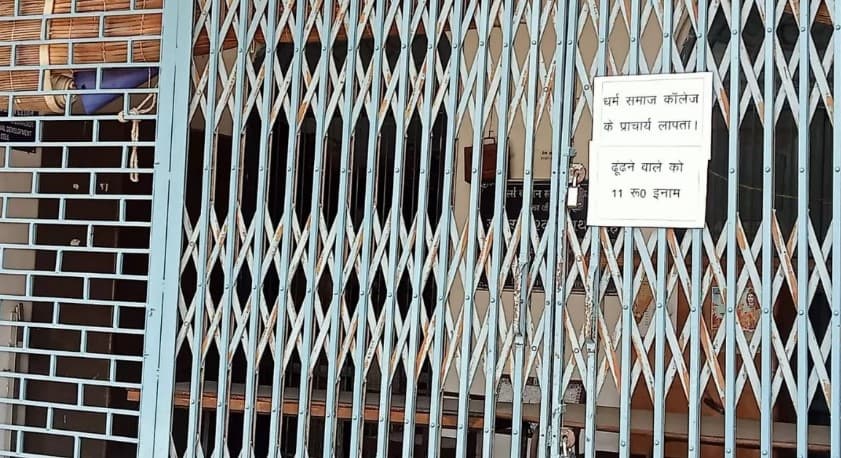 धर्म समाज कॉलेज
के प्राचार्य लापता।
ढूंढने वाले को
11 रू0 इनाम